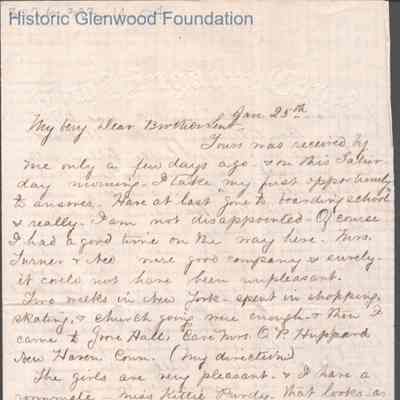 Historic Glenwood Foundation
Jan 25th
My very dear Brother
Yours was received by
me only a few days ago. & on this Satur
day morning. I take my first opportunity
to answer. Have at last gone to boarding school
& really I am not disappointed. Of course
I had a good time on the way here. Mrs.
Turner & were good company & surely
it could not have been unpleasant.
Two weeks in New York. spent in shopping,
skating, & church going were enough & then I
came to Grove Hall, Care Mrs. O. P. Huppard
New Haven Conn. (my direction)
The girls are very pleasant. & I have a
roommate Miss Kittie Purdy. that looks as